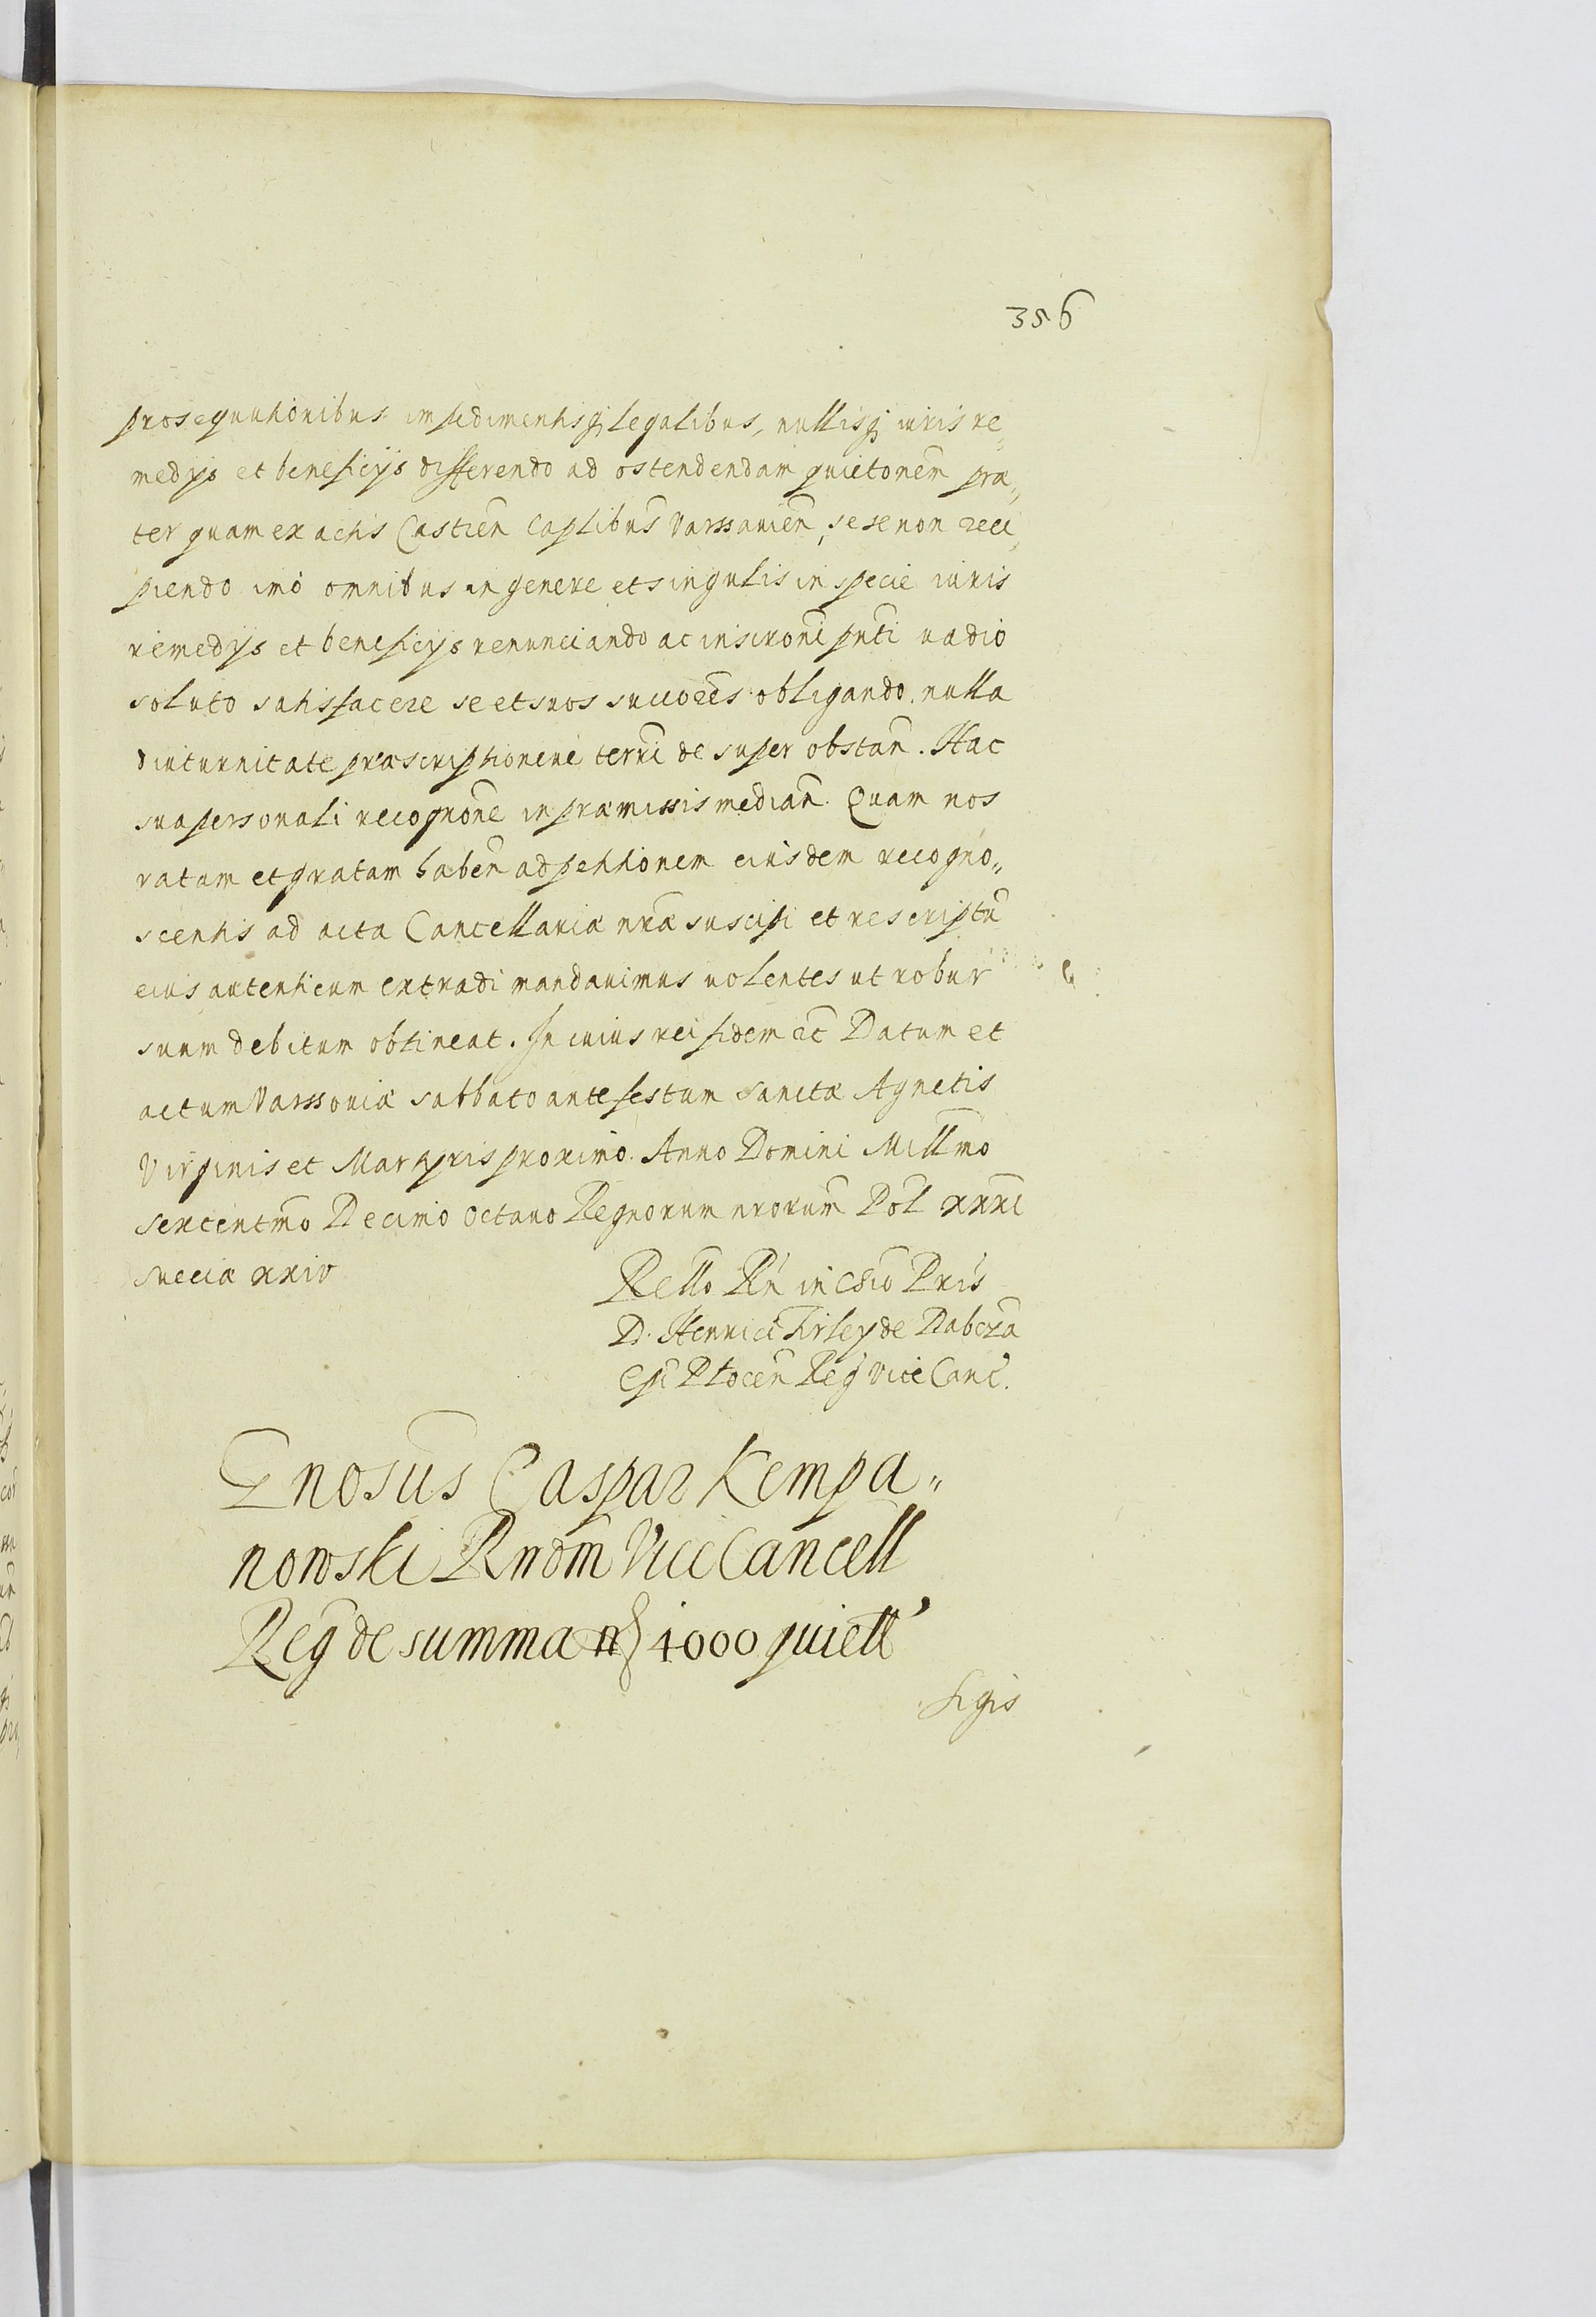 356
prosequutionibus impedimentisq; legalibus, nullisq; iuris re„
medijs et beneficijs differendo ad ostendendam quietonem̃ præ„
ter quam ex actis Castren̄ Caplibus̃ Varssauien̄, sese non reci„
piendo imò omnibus in genere et singulis in specie iuris
remedijs et beneficijs renunciando ac inscronĩ pnti uadio
soluto satisfacere se et suos succores̃ obligando. nulla
diuturnitate præscriptioneue terrĩ de super obstan̄. Hac
sua personali recognonē in præmissis median̄. Quam nos
ratam et gratam haben̄ ad petitionem eiusdem recogno„
scentis ad acta Cancellariæ nræ suscipi et rescriptū
eius autenticum extradi mandauimus uolentes ut robur
suum debitum obtineat. In cuius rei fidem etc̄ Datum et
actum Varssouiæ sabbato ante festum Sanctæ Agnetis
Virginis et Martyris proximo. Anno Domini Millm̄o
sexcentm̄o Decimo Octauo Regnorum nrorum̄ Pol̄ xxxi
Sueciæ xxiv
Rello Rn̄ in Chr̄o Pris
D. Henrici Firley de Dabroza
Epi Plocen̄ Reg̃ Vice Canc̄.
Gnosus̃ Caspar Kempa„
nowski Rndm̄ Vice Cancell
Reg̃ de summa fl 4000 quietť
Sigis